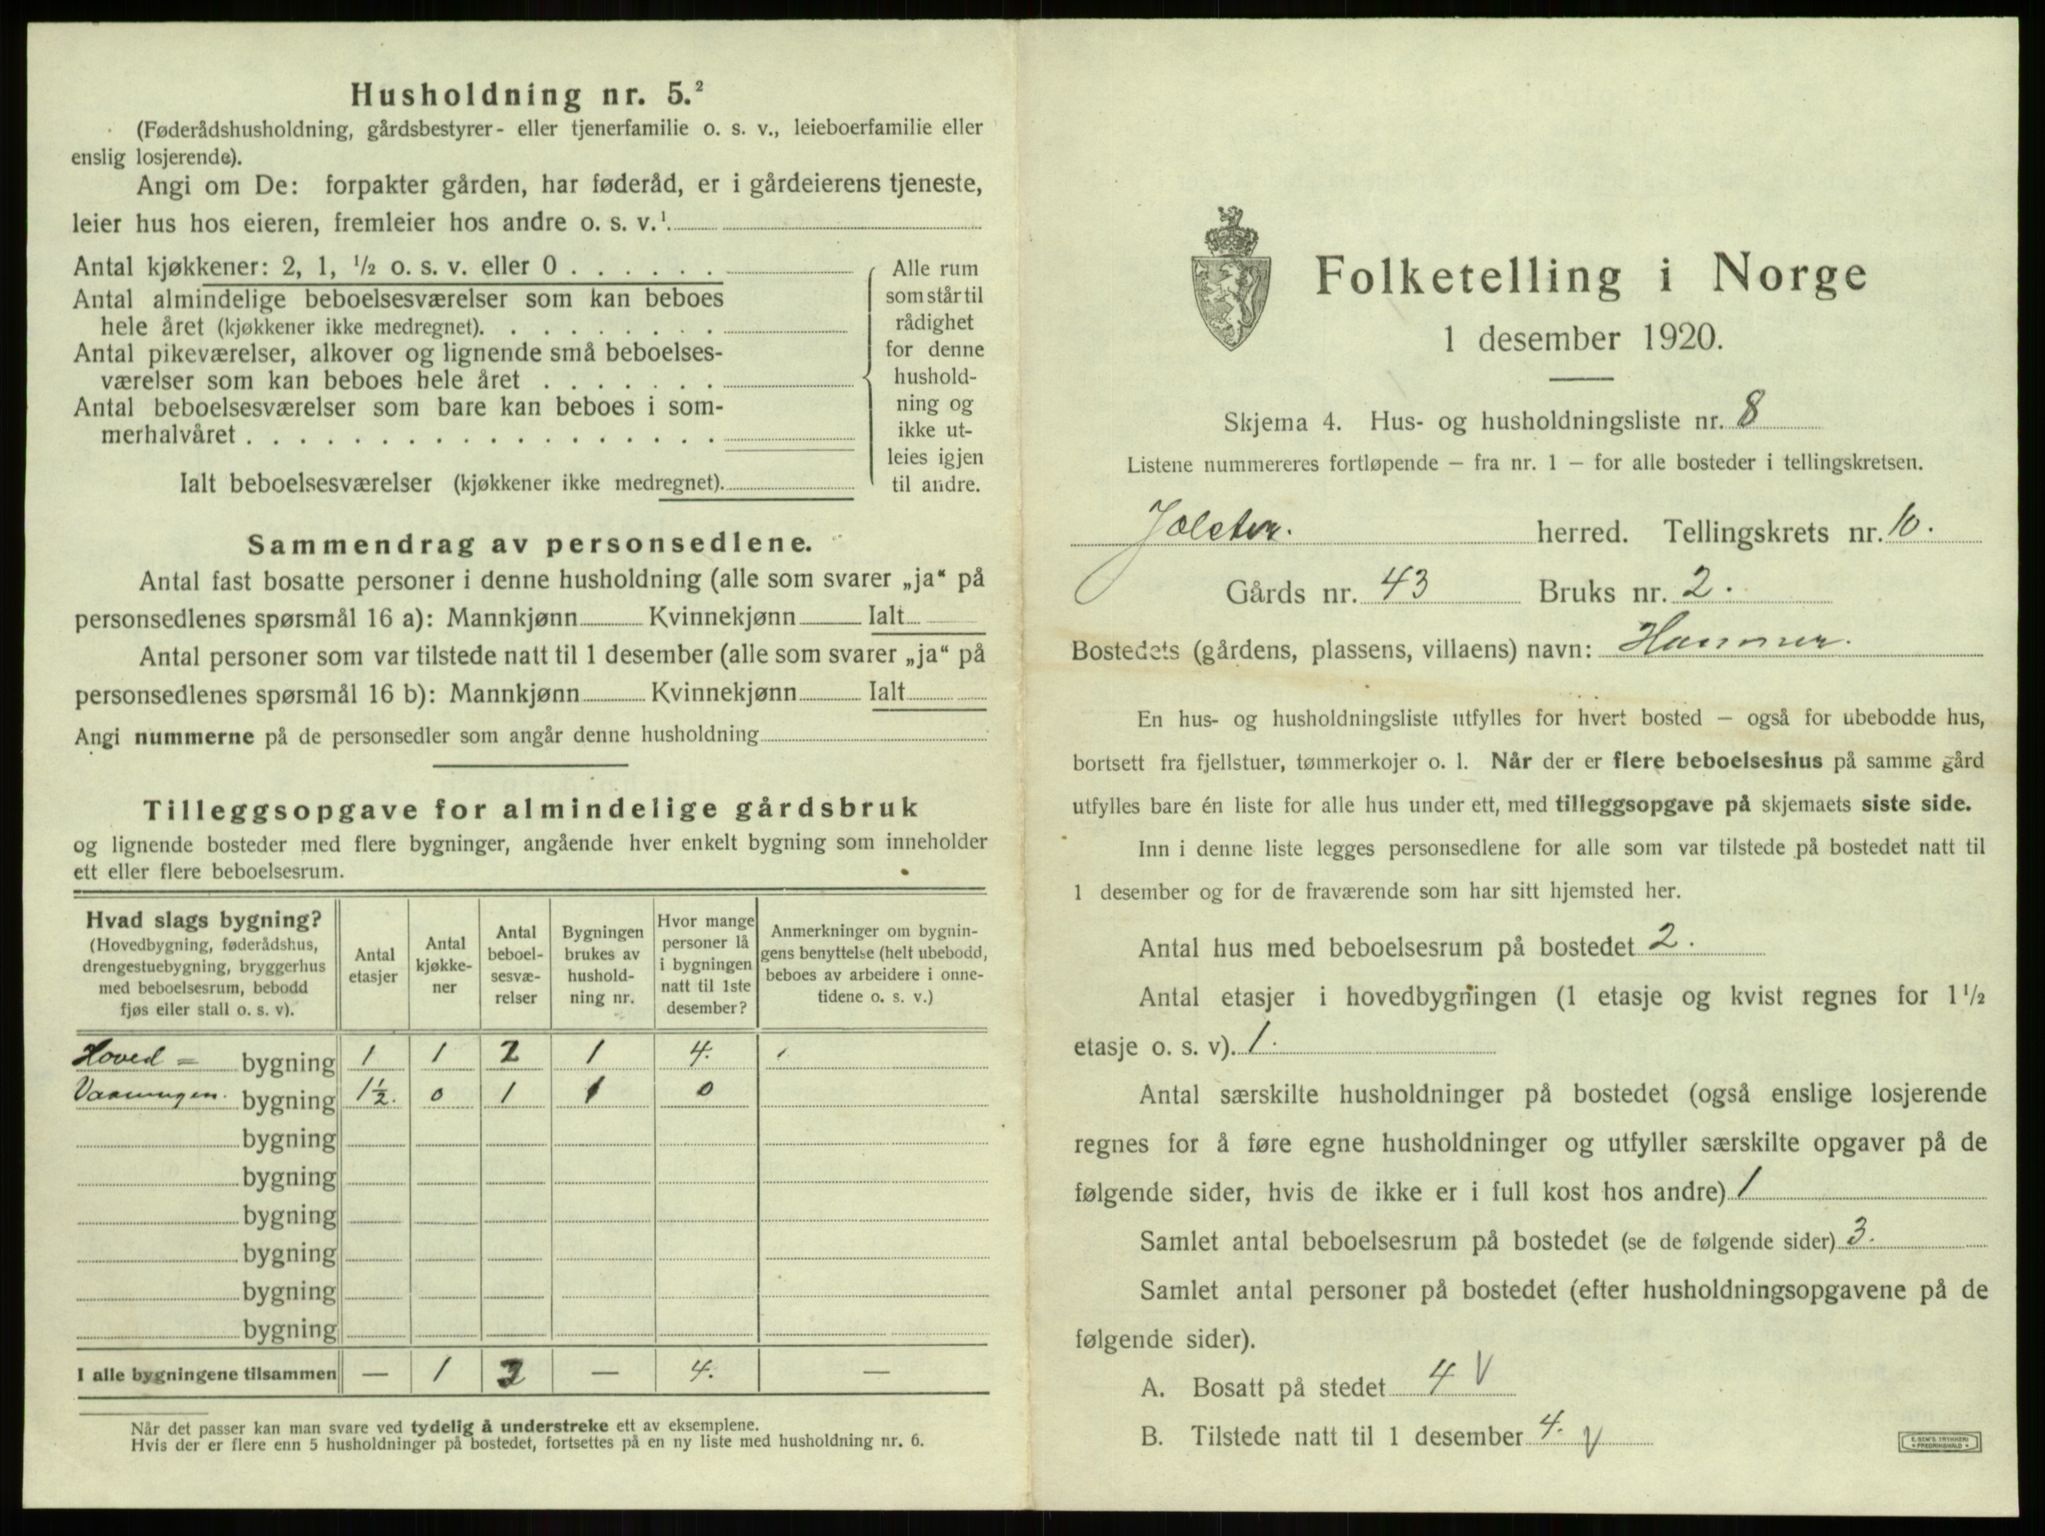 Husholdning nr. 5.²
(Føderådshusholdning, gårdsbestyrer- eller tjenerfamilie o. s. v., leieboerfamilie eller
enslig losjerende).
Angi om De: forpakter gården, har føderåd, er i gårdeierens tjeneste,
leier hus hos eieren, fremleier hos andre o. s. v.¹
Antal kjøkkener: 2, 1, ½ o. s. v. eller 0 . . . . . .
Antal almindelige beboelsesværelser som kan beboes
hele året (kjøkkener ikke medregnet). . . . . . . . .
Antal pikeværelser, alkover og lignende små beboelses-
værelser som kan beboes hele året . . . . . . .
Antal beboelsesværelser som bare kan beboes i som-
merhalvåret . . . . . . . . . . . . . . . . . .
Ialt beboelsesværelser (kjøkkener ikke medregnet).
Alle rum
som står til
rådighet
for denne
hushold-
ning og
ikke ut-
leies igjen
til andre.
Sammendrag av personsedlene.
Antal fast bosatte personer i denne husholdning (alle som svarer „ja“ på
personsedlenes spørsmål 16 a): Mannkjønn Kvinnekjønn Ialt
Antal personer som var tilstede natt til 1 desember (alle som svarer „ja“ på
personsedlenes spørsmål 16 b): Mannkjønn Kvinnekjønn Ialt
Angi nummerne på de personsedler som angår denne husholdning
Tilleggsopgave for almindelige gårdsbruk
og lignende bosteder med flere bygninger, angående hver enkelt bygning som inneholder
ett eller flere beboelsesrum.
Hvad slags bygning?
(Hovedbygning, føderådshus,
drengestuebygning, bryggerhus
med beboelsesrum, bebodd
fjøs eller stall o. s. v).
Antal
etasjer
Antal
kjøkke-
ner
Antal
beboel-
sesvæ-
relser
Bygningen
brukes av
hushold-
ning nr.
Hvor mange
personer lå
i bygningen
natt til 1ste
desember?
Anmerkninger om bygnin-
gens benyttelse (helt ubebodd,
beboes av arbeidere i onne-
tidene o. s. v.)
Hoved = bygning 1 1 2 1 4.
Vaaningen. bygning 1½. 0 1 1 0
bygning
bygning
bygning
bygning
bygning
bygning
I alle bygningene tilsammen — 1 3 — 4. —
Når det passer kan man svare ved tydelig å understreke ett av eksemplene.
Hvis der er flere enn 5 husholdninger på bostedet, fortsettes på en ny liste med husholdning nr. 6.
Folketelling i Norge
1 desember 1920.
Skjema 4. Hus- og husholdningsliste nr. 8
Listene nummereres fortløpende – fra nr. 1 – for alle bosteder i tellingskretsen.
Jølster. herred. Tellingskrets nr. 10.
Gårds nr. 43 Bruks nr. 2.
Bostedets (gårdens, plassens, villaens) navn: Hammer.
En hus- og husholdningsliste utfylles for hvert bosted – også for ubebodde hus,
bortsett fra fjellstuer, tømmerkojer o. l. Når der er flere beboelseshus på samme gård
utfylles bare én liste for alle hus under ett, med tilleggsopgave på skjemaets siste side.
Inn i denne liste legges personsedlene for alle som var tilstede på bostedet natt til
1 desember og for de fraværende som har sitt hjemsted her.
Antal hus med beboelsesrum på bostedet 2.
Antal etasjer i hovedbygningen (1 etasje og kvist regnes for 1½
etasje o. s. v). 1.
Antal særskilte husholdninger på bostedet (også enslige losjerende
regnes for å føre egne husholdninger og utfyller særskilte opgaver på de
følgende sider, hvis de ikke er i full kost hos andre) 1
Samlet antal beboelsesrum på bostedet (se de følgende sider) 3.
Samlet antal personer på bostedet (efter husholdningsopgavene på de
følgende sider).
A. Bosatt på stedet 4 V
B. Tilstede natt til 1 desember 4. V